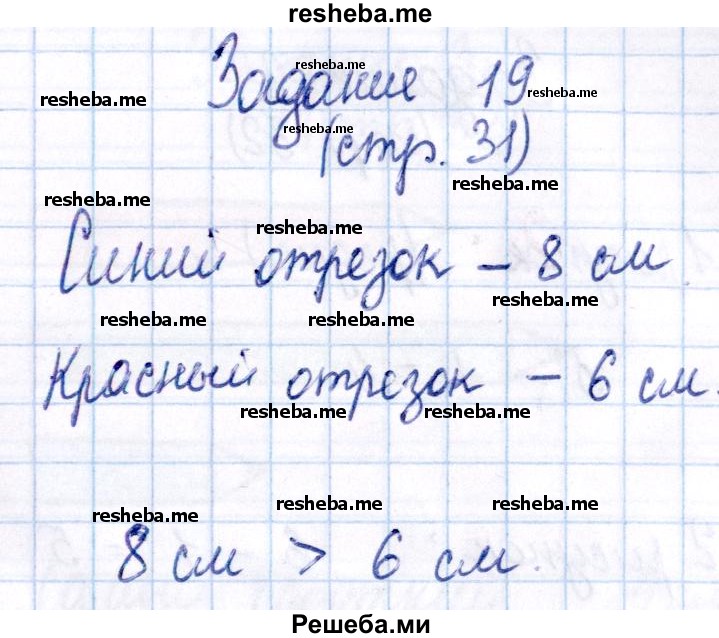 resheba.me
resheba.me
resheba.me
resheba.me
Задание 19
resheba.me
(стр. 31)
resheba.me
resheba.me
resheba.me
Синий отрезок – 8 см.
resheba.me
resheba.me
resheba.me
Красный отрезок – 6 см.
resheba.me
resheba.me
resheba.me
resheba.me
resheba.me
8 см > 6 см.
Решеба.ми